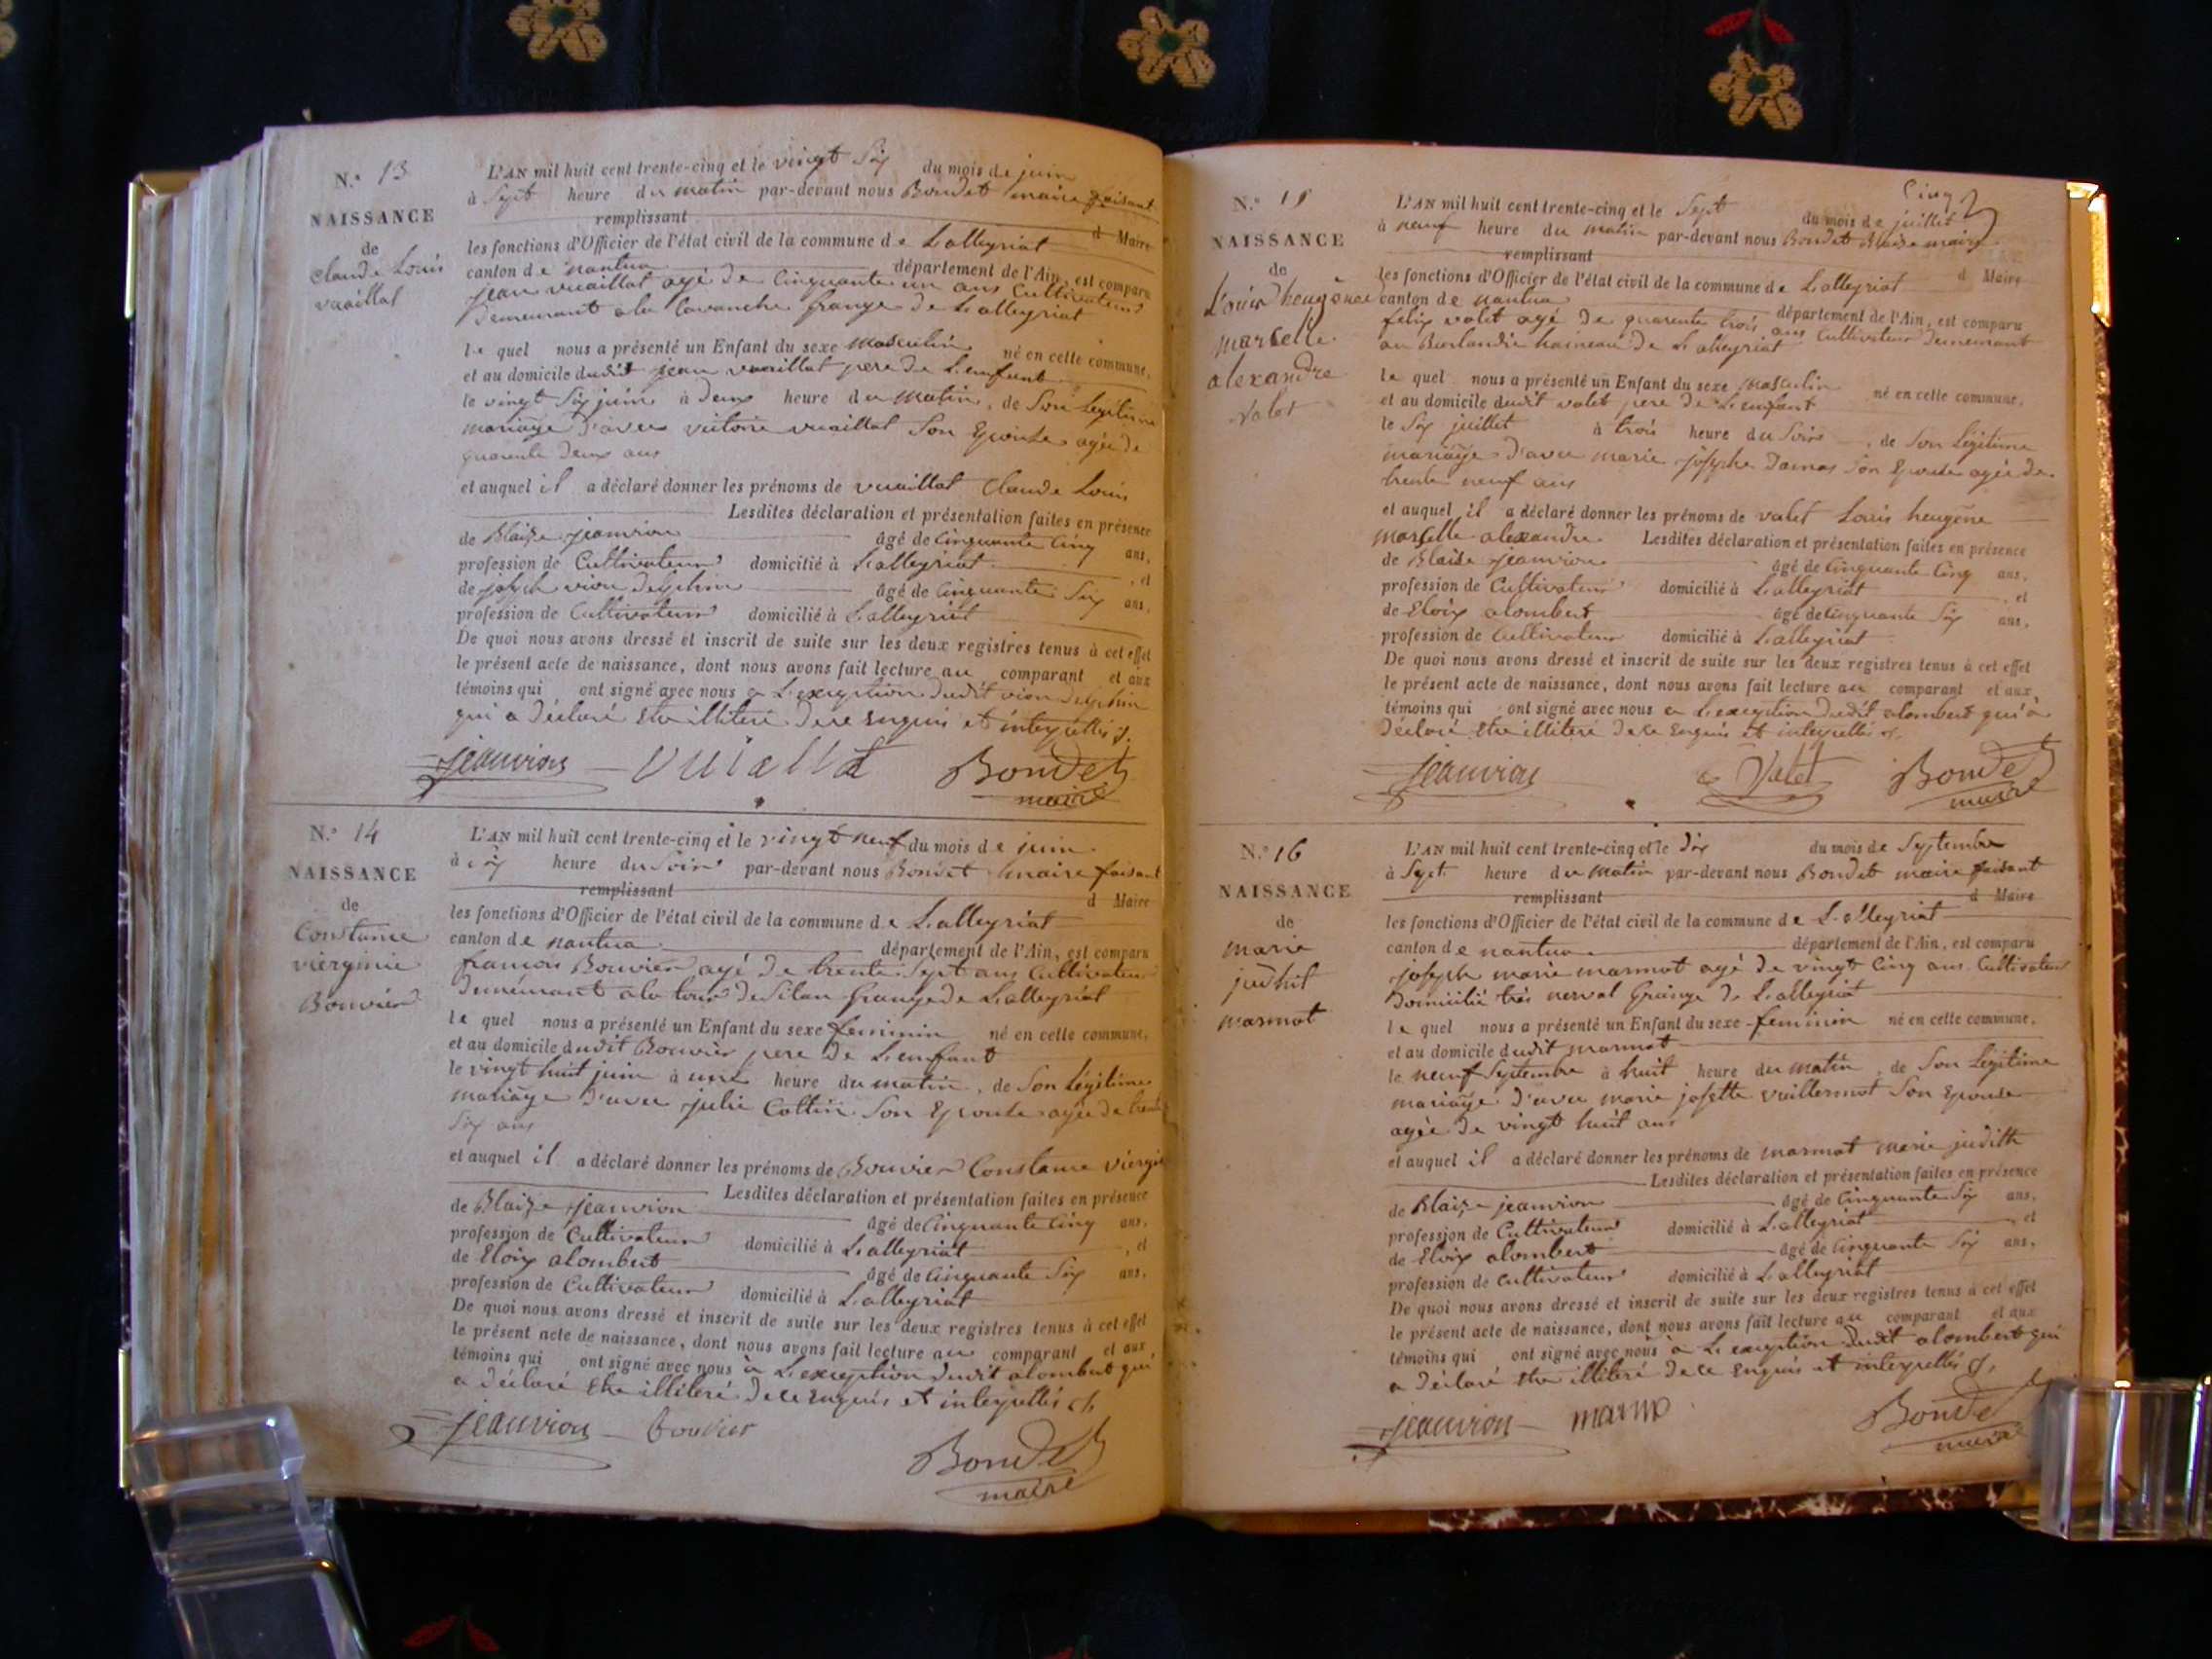 N.º 13
NAISSANCE
de
Claude Louis
vuaillat
L'AN mil huit cent trente-cinq et le vingt Six du mois de juin
à Sept heure du matin par-devant nous Bondet maire faisant
remplissant d Maire
les fonctions d'Officier de l'état civil de la commune de Lalleyriat
canton de nantua département de l'Ain, est comparu
jean vuaillat agé de Cinquante un ans Cultivateur
Demeurant a la Lavanche grange de Lalleyriat
le quel nous a présenté un Enfant du sexe masculin né en cette commune,
et au domicile dudit jean vuaillat pere de L'enfant
le vingt Six juin à Deux heure du matin, de Son Légitime
mariage D'avec victoire vuaillat Son Epouse agée de
quarente Deux ans
et auquel il a déclaré donner les prénoms de vuaillat Claude Louis
Lesdites déclaration et présentation faites en présence
de Blaise jeanvion âgé de Cinquante Cinq ans,
profession de Cultivateur domicilié à Lalleyriat, et
de joseph vion Delphin âgé de Cinquante Six ans,
profession de Cultivateur domicilié à Lalleyriat
De quoi nous avons dressé et inscrit de suite sur les deux registres tenus à cet effet
le présent acte de naissance, dont nous avons fait lecture au comparant et aux
témoins qui ont signé avec nous a L'exception dudit vion Delphin
qui a Déclaré etre illiteré De ce enquis et interpellés
jeanvion vuiallat Bondet
maire
N.º 14
NAISSANCE
de
Constance
vierginie
Bouvier
L'AN mil huit cent trente-cinq et le vingt neuf du mois de juin
à Six heure du Soir par-devant nous Bondet maire faisant
remplissant d Maire
les fonctions d'Officier de l'état civil de la commune de Lalleyriat
canton de nantua département de l'Ain, est comparu
francois Bouvier agé De trente Sept ans Cultivateur
Demeurant a la tour De Silan Grange de Lalleyriat
le quel nous a présenté un Enfant du sexe feminin né en cette commune,
et au domicile dudit Bouvier pere De L'enfant
le vingt huit juin à une heure du matin, de Son Légitime
mariage D'avec julie Cottin Son Epouse agée de trente
Six ans
et auquel il a déclaré donner les prénoms de Bouvier Constance viergi
Lesdites déclaration et présentation faites en présence
de Blaise jeanvion âgé de Cinquante Cinq ans,
profession de Cultivateur domicilié à Lalleyriat, et
de Eloix alombert âgé de Cinquante Six ans,
profession de Cultivateur domicilié à Lalleyriat
De quoi nous avons dressé et inscrit de suite sur les deux registres tenus à cet effet
le présent acte de naissance, dont nous avons fait lecture au comparant et aux
témoins qui ont signé avec nous à L'exception dudit alombert qui
a Déclaré etre illiteré De ce enquis et interpellés
jeanvion bouvier Bondet
maire
N.º 15
NAISSANCE
de
Louis heugène
marcelle
alexandre
valet
Cinq
L'AN mil huit cent trente-cinq et le Sept du mois de juillet
à neuf heure du matin par-devant nous Bondet Blaise maire
remplissant d Maire
les fonctions d'Officier de l'état civil de la commune de Lalleyriat
canton de nantua département de l'Ain, est comparu
felix valet agé De quarente trois ans Cultivateur Demeurant
au Burlandie hameau De Lalleyriat
le quel nous a présenté un Enfant du sexe masculin né en cette commune,
et au domicile dudit valet pere de L'enfant
le Six juillet à trois heure du Soir, de Son Légitime
mariage D'avec marie josephe Damas Son Epouse agée de
trente neuf ans
et auquel il a déclaré donner les prénoms de valet Louis heugène
marcelle alexandre Lesdites déclaration et présentation faites en présence
de Blaise jeanvion âgé de Cinquante Cinq ans,
profession de Cultivateur domicilié à Lalleyriat, et
de Eloix alombert âgé de Cinquante Six ans,
profession de Cultivateur domicilié à Lalleyriat
De quoi nous avons dressé et inscrit de suite sur les deux registres tenus à cet effet
le présent acte de naissance, dont nous avons fait lecture au comparant et aux
témoins qui ont signé avec nous a L'exception dudit alombert qui a
Déclaré etre illiteré De ce enquis et interpellés
jeanvion Valet Bondet
maire
N.º 16
NAISSANCE
de
marie
judhit
marmot
L'AN mil huit cent trente-cinq et le Dix du mois de Septembre
à Sept heure du matin par-devant nous Bondet maire faisant
remplissant d Maire
les fonctions d'Officier de l'état civil de la commune de Lalleyriat
canton de nantua département de l'Ain, est comparu
joseph marie marmot agé De vingt Cinq ans Cultivateur
Domicilié très nerval Grange De Lalleyriat
le quel nous a présenté un Enfant du sexe feminin né en cette commune,
et au domicile dudit marmot
le neuf Septembre à huit heure du matin, de Son Légitime
mariage D'avec marie josette vuillermot Son Epouse
agée De vingt huit ans
et auquel il a déclaré donner les prénoms de marmot marie judith
Lesdites déclaration et présentation faites en présence
de Blaise jeanvion âgé de Cinquante Six ans,
profession de Cultivateur domicilié à Lalleyriat, et
de Eloix alombert âgé de Cinquante Six ans,
profession de Cultivateur domicilié à Lalleyriat
De quoi nous avons dressé et inscrit de suite sur les deux registres tenus à cet effet
le présent acte de naissance, dont nous avons fait lecture au comparant et aux
témoins qui ont signé avec nous à L'exception dudit alombert qui
a Déclaré etre illiteré De ce enquis et interpellés
jeanvion marmo Bondet
maire